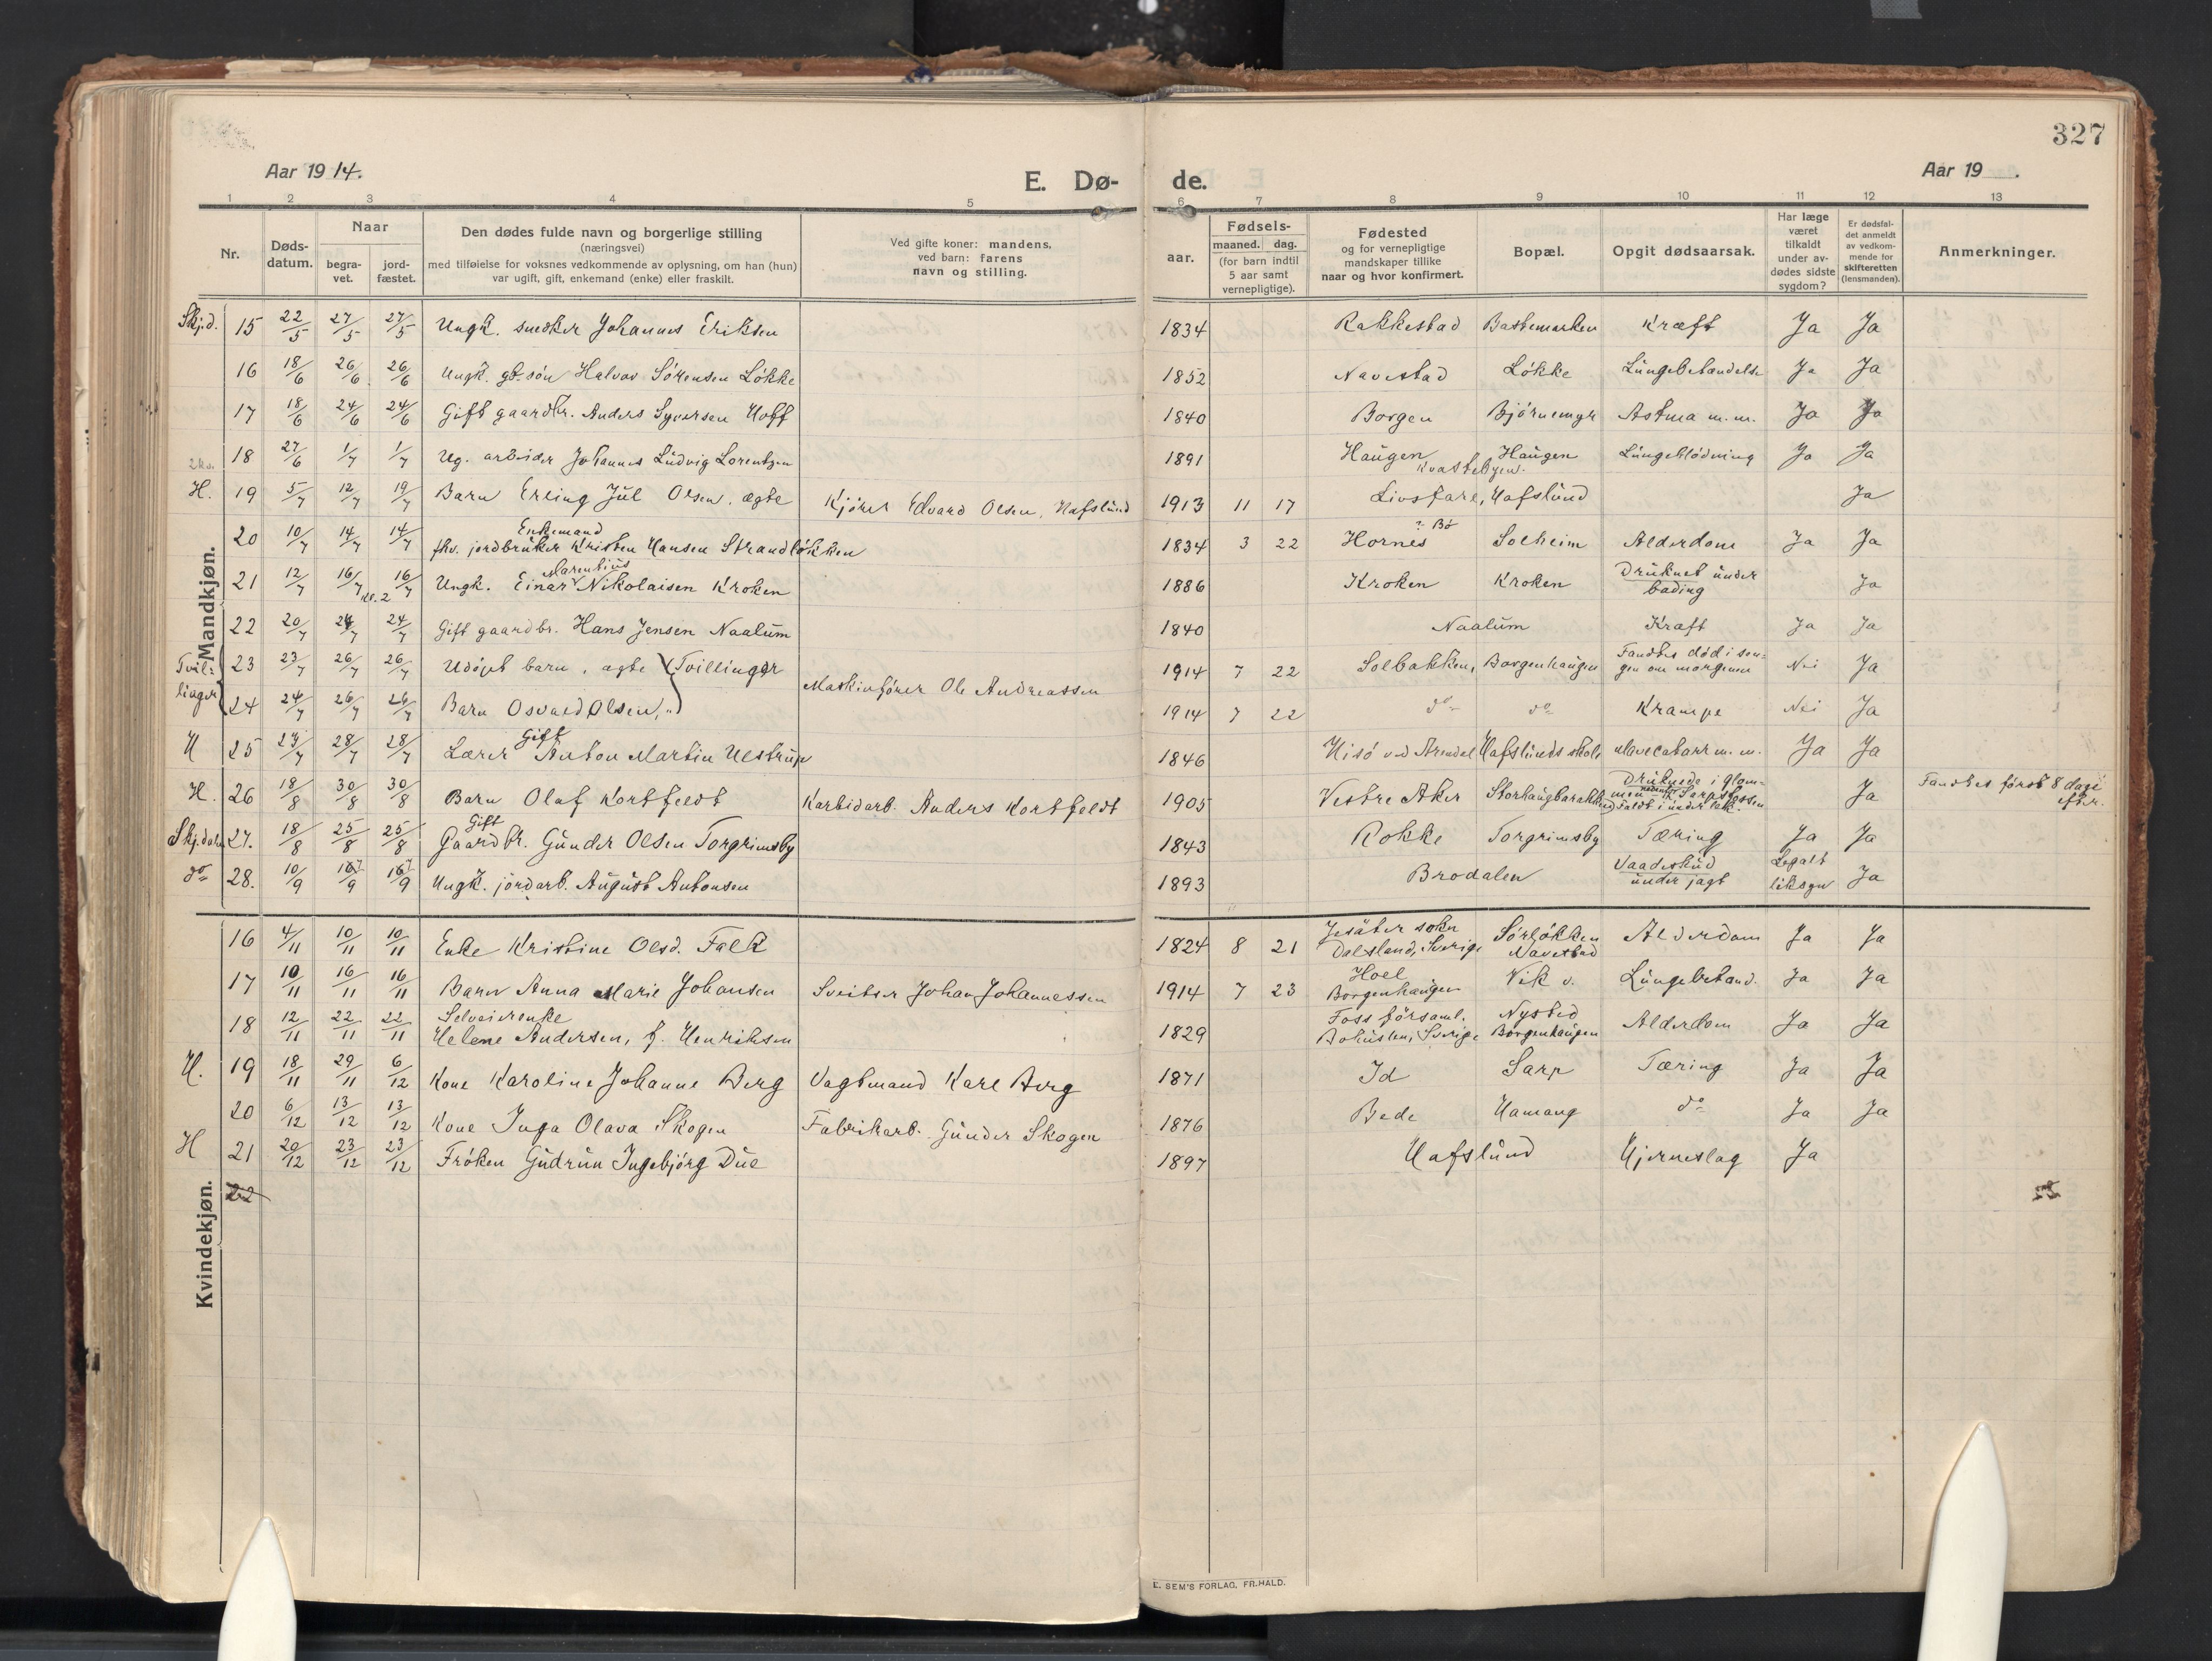 327
Aar 1914.
E. Dø- de.
Aar 19 .
1 2 3 4 5 6 7 8 9 10 11 12 13
Nr.
Døds-
datum.
Naar
begra-
vet.
jord-
fæstet.
Den dødes fulde navn og borgerlige stilling
(næringsvei)
med tilføielse for voksnes vedkommende av oplysning, om han (hun)
var ugift, gift, enkemand (enke) eller fraskilt.
Ved gifte koner: mandens,
ved barn: farens
navn og stilling.
Fødsels-
aar.
maaned. dag.
(for barn indtil
5 aar samt
vernepligtige).
Fødested
og for vernepligtige
mandskaper tillike
naar og hvor konfirmert.
Bopæl.
Opgit dødsaarsak.
Har læge
været
tilkaldt
under av-
dødes sidste
sygdom?
Er dødsfal-
det anmeldt
av vedkom-
mende for
skifteretten
(lensmanden).
Anmerkninger.
Mandkjøn.
Skj.d. 15 22/5 27/5 27/5 Ungk. snedker Johannes Eriksen 1834 Rakkestad Bastemarken Kræft Ja Ja
16 18/6 26/6 26/6 Ungk. gb.søn Halvor Sørensen Løkke 1852 Navestad Løkke Lungebetændelse Ja Ja
17 18/6 24/6 24/6 Gift gaardbr. Anders Syversen Hoff 1840 Borgen Bjørnemyr Astma m.m. Ja Ja
18 27/6 1/7 1/7 Ug. arbeider Johannes Ludvig Lorentzen 1891 Haugen Haugen Lungeblødning Ja Ja
Kvastebyen.
H. 19 5/7 12/7 19/7 Barn Erling Jul Olsen, ægte Kjører Edvard Olsen, Hafslund 1913 11 17 Livsfare, Hafslund Ja
Enkemand
? Bø
20 10/7 14/7 14/7 fhv. jordbruker Kristen Hansen Strandløkken 1834 3 22 Hornes Solheim Alderdom Ja Ja
Marentius
21 12/7 16/7 kl. 2 16/7 Ungk. Einar Nikolaisen Kroken 1886 Kroken Kroken Druknet under
bading Ja
22 20/7 24/7 24/7 Gift gaardbr. Hans Jensen Naalum 1840 Naalum Kræft Ja Ja
Tvil-
linger
23 23/7 26/7 26/7 Udøpt barn, ægte (Tvillinger 1914 7 22 Solbakken, Borgenhaugen Fandtes død i sen-
gen om morgenen Nei Ja
Maskinfører Ole Andreassen
24 24/7 26/7 26/7 Barn Osvald Olsen, " 1914 7 22 do do Krampe Nei Ja
Gift
H 25 23/7 28/7 28/7 Lærer Anton Martin Uestrup 1846 Hisø ved Arendal Hafslunds skole Mavecatarr m.m. Ja Ja
H. 26 18/8 30/8 30/8 Barn Olaf Kortfeldt Karbidarb. Anders Kortfeldt 1905 Vestre Aker Storhaugbarakken Druknede i Glom-
men nedenfor Sarpsfossen
Faldt i under lek. Ja Fandtes først 8 dage
efter.
Gift
Skj.dalen 27. 18/8 25/8 25/8 Gaardbr. Gunder Olsen Torgrimsby 1843 Rokke Torgrimsby Tæring Ja Ja
do 28. 10/9 16/9 16/9 Ungk. jordarb. August Antonsen 1893 Brødalen Vaadeskud
under jagt Legalt
liksyn Ja
Kvindekjøn.
16 4/11 10/11 10/11 Enke Kristine Olsd. Falk 1824 8 21 Jesäter sokn
Dalsland, Sverige Sørløkken
Navestad Alderdom Ja Ja
17 10/11 16/11 16/11 Barn Anna Marie Johansen Sveitser Johan Johannessen 1914 7 23 Hoel
Borgenhaugen Vik v. Lungebetænd. Ja Ja
18 12/11 22/11 22/11 Selveierenke
Helene Andersen, f. Henriksen 1829 Foss førsaml.
Bohuslen, Sverige Nysted
Borgenhaugen Alderdom Ja Ja
H. 19 18/11 29/11 6/12 Kone Karoline Johanne Berg Vagtmand Karl Berg 1871 Id Sarp Tæring Ja Ja
20 6/12 13/12 13/12 Kone Inga Olava Skogen Fabrikarb. Gunder Skogen 1876 Bede Hamang do Ja Ja
H 21 20/12 23/12 23/12 Frøken Gudrun Ingebjørg Due 1897 Hafslund Hjerneslag Ja
22
E. SEM'S FORLAG, FR.HALD.